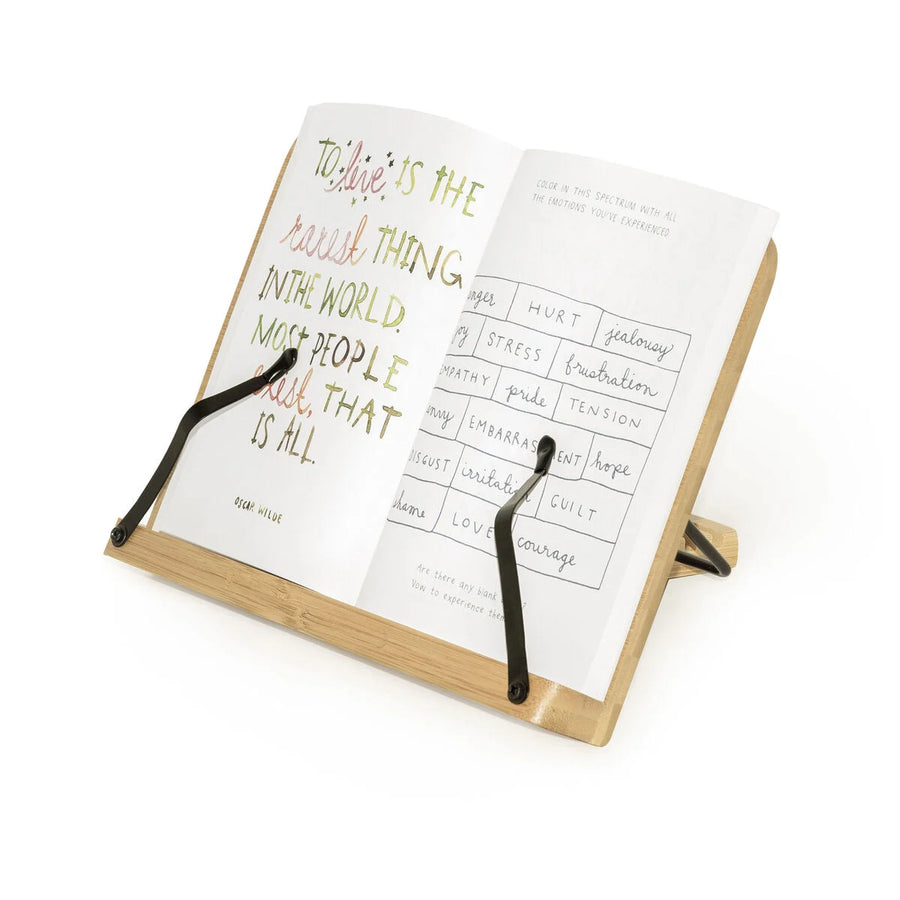 TO live IS THE
rarest THING
IN THE WORLD.
MOST PEOPLE
exist, THAT
IS ALL.
OSCAR WILDE
COLOR IN THIS SPECTRUM WITH ALL
THE EMOTIONS YOU'VE EXPERIENCED
HURT jealousy
STRESS frustration
pride TENSION
hope
irritation GUILT
LOVE courage
Are there any blank
Vow to experience them